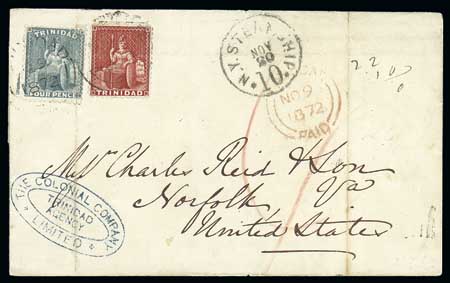 TRINIDAD
FOUR PENCE
TRINIDAD
N.Y. STEAMSHIP
NOV
20
10
NO 9
1872
PAID
Messrs Charles Reid & Son
Norfolk Va
United States
THE COLONIAL COMPANY
TRINIDAD
AGENCY
LIMITED